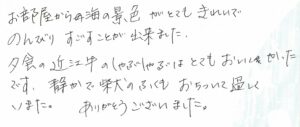 お部屋からの海の景色がとてもきれいで
のんびりすごすことが出来ました。
夕食の近江牛のしゃぶしゃぶはとてもおいしかった
です。静かで柴犬のふくもおちついて過して
いました。ありがとうございました。